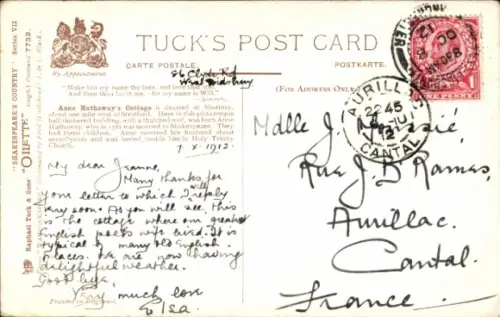 TUCK'S POST CARD
By Appointment.
CARTE POSTALE.
POSTKARTE.
(FOR ADDRESS ONLY.)
"SHAKESPEARE'S COUNTRY" Series VII
"OILETTE"
Raphael Tuck & Sons'
7732.
86 Clyde Rd
West Didsbury
"Make but my name thy love, and love that
And then thou lov'st me—for my name is WILL"
Anne Hathaway's Cottage is situated at Shottery,
about one mile west of Stratford. Here in this picturesque
half-timbered house, with a thatched roof, was born Anne
Hathaway, who in 1582 was married to Shakespeare. They
had three children. Anne survived her husband about
years and was buried beside him in Holy Trinity
Church.
7. X. 1912.
My dear Jeanne,
Many thanks for
your letter to which I will reply
very soon. As you will see this
is the cottage where our greatest
English poet's wife lived. It is
typical of many old English
places. We are now having
delightful weather.
Good bye,
Very much love
Elsa.
Printed in England.
Mdlle J.
Rue J. D Rames,
Aurillac.
Cantal.
France.
AURILLAC
22 45
12
CANTAL
OC 8
12
ONE PENNY